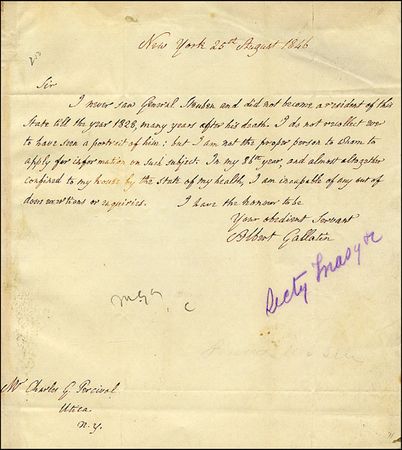 New York 25th August 1846
Sir
I never saw General Steuben and did not become a resident of this
State till the year 1828, many years after his death. I do not recollect ever
to have seen a portrait of him; but I am not the proper person to whom to
apply for information on such subject. In my 86th year, and almost altogether
confined to my house by the state of my health, I am incapable of any out of
doors exertions or enquiries. I have the honour to be
Your obedient Servant
Albert Gallatin
Secty Treasy &c
Mr Charles G. Percival
Utica
N. Y.